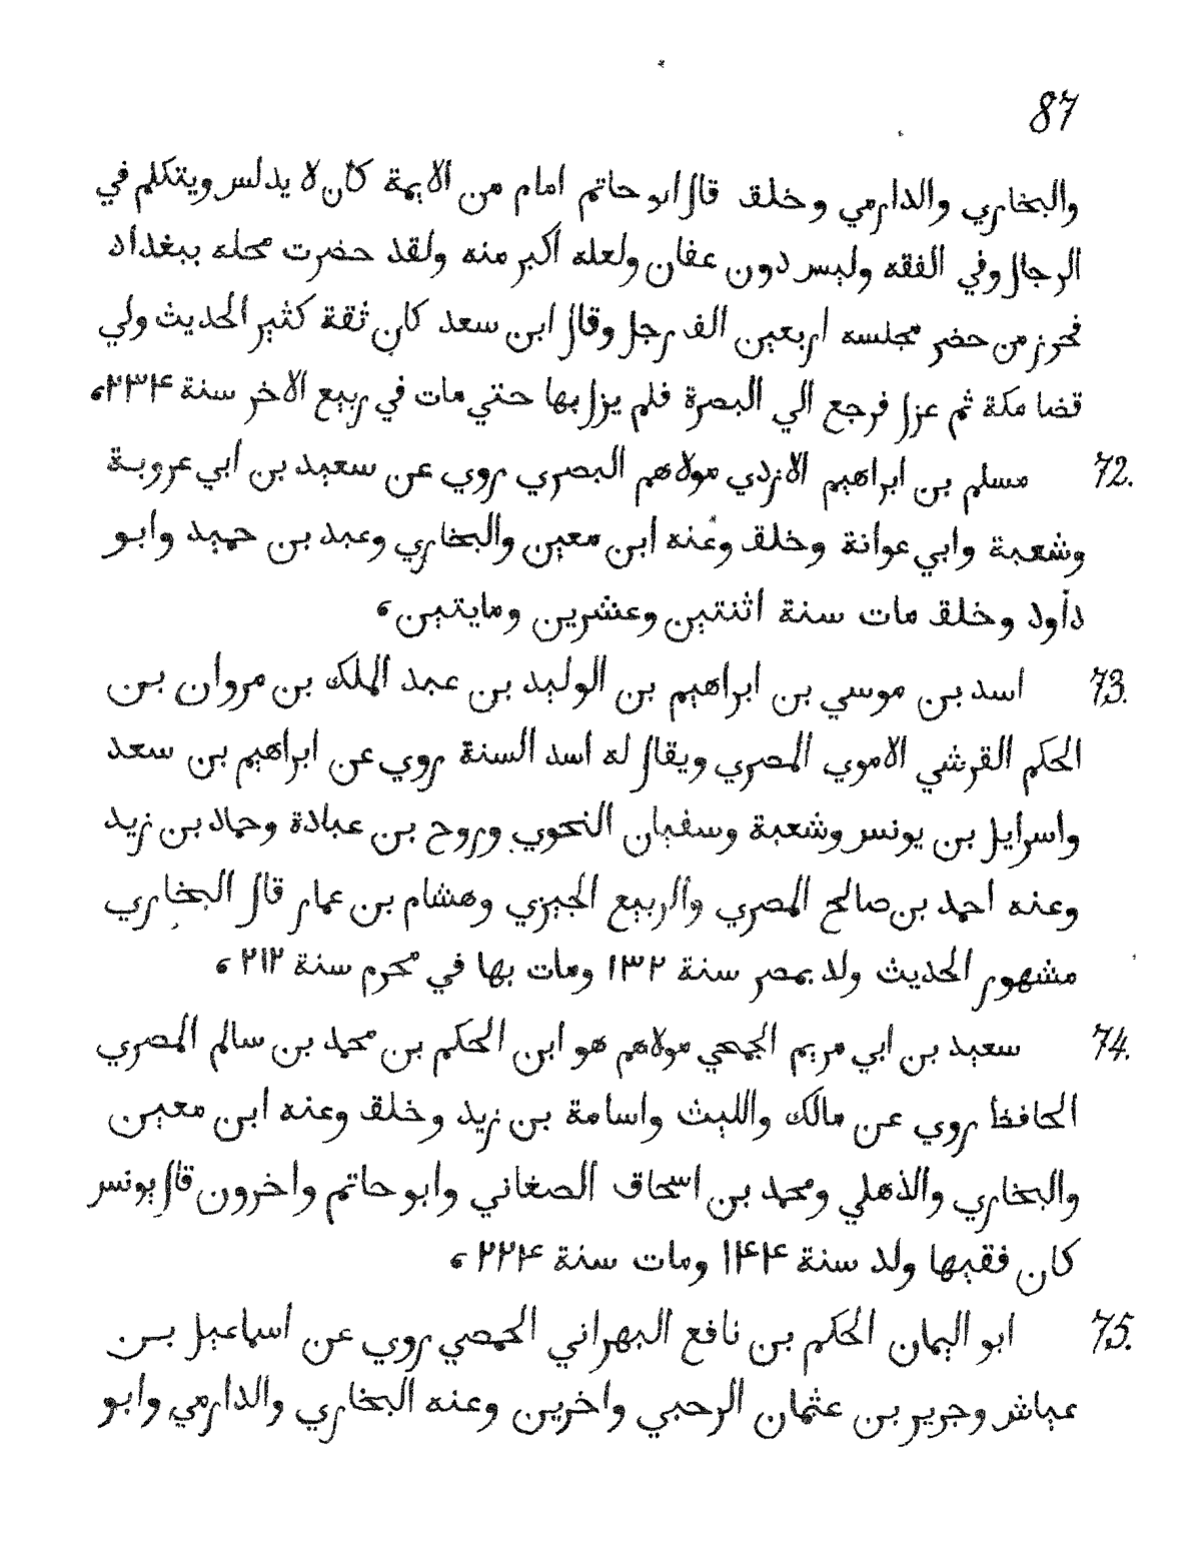 87
والبخاري والدارمي وخلق قال ابو حاتم امام من الايمة كان لا يدلس ويتكلم في
الرجال وفي الفقه وليس دون عفان ولعله أكبر منه ولقد حضرت مجلسه ببغداد
فحرز من حضر مجلسه اربعين الف رجل وقال ابن سعد كان ثقة كثير الحديث ولي
قضا مكة ثم عزل فرجع الي البصرة فلم يزل بها حتي مات في ربيع الاخر سنة ٢٣۴،
72. مسلم بن ابراهيم الازدي مولاهم البصري روي عن سعيد بن ابي عروبة
وشعبة وابي عوانة وخلق وعنه ابن معين والبخاري وعبد بن حميد وابو
دأود وخلق مات سنة اثنتين وعشرين ومايتين،
73. اسد بن موسي بن ابراهيم بن الوليد بن عبد الملك بن مروان بن
الحكم القرشي الاموي المصري ويقال له اسد السنة روي عن ابراهيم بن سعد
واسرايل بن يونس وشعبة وسفيان النحوي وروح بن عبادة وحماد بن زيد
وعنه احمد بن صالح المصري والربيع الجيزي وهشام بن عمار قال البخاري
مشهور الحديث ولد بمصر سنة ١٣٢ ومات بها في محرم سنة ٢١٢،
74. سعيد بن ابي مريم الجمحي مولاهم هو ابن الحكم بن محمد بن سالم المصري
الحافظ روي عن مالك والليث واسامة بن زيد وخلق وعنه ابن معين
والبخاري والذهلي ومحمد بن اسحاق الصغاني وابو حاتم واخرون قال يونس
كان فقيها ولد سنة ١۴۴ ومات سنة ٢٢۴،
75. ابو اليمان الحكم بن نافع البهراني الحمصي روي عن اسماعيل بن
عياش وجرير بن عثمان الرحبي واخرين وعنه البخاري والدارمي وابو